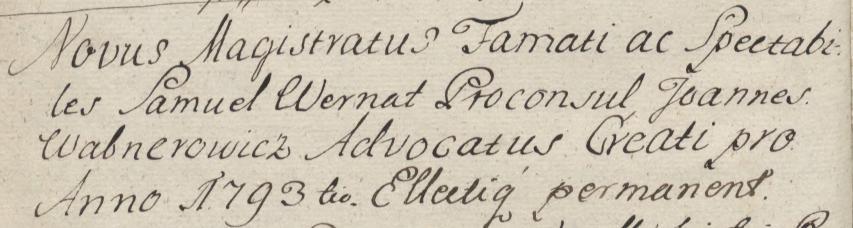 Novus Magistratus Famati ac Spectabi-
les Samuel Wernat Proconsul Joannes.
Wabnerowicz Advocatus Creati pro
Anno 1793 tio. Ellectiq permanent.